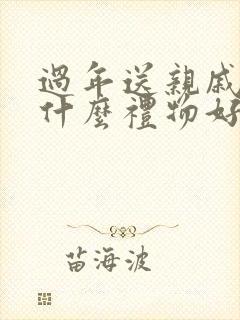 過年送親戚
什麼禮物好
苗海波